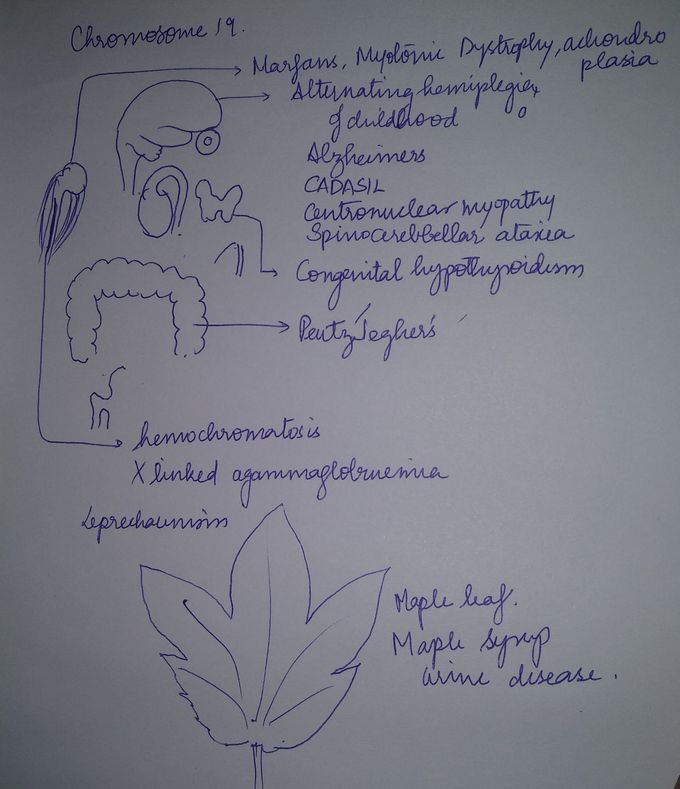 Chromosome 19.
Marfans, Myotonic Dystrophy, achondro
plasia
Alternating hemiplegia
of childhood
Alzheimers
CADASIL
Centronuclear myopathy
Spinocerebbellar ataxia
Congenital hypothyroidism
Peutz Jeghers
hemochromatosis
X linked agammaglobruemia
Leprechaunism
Maple leaf.
Maple syrup
urine disease.